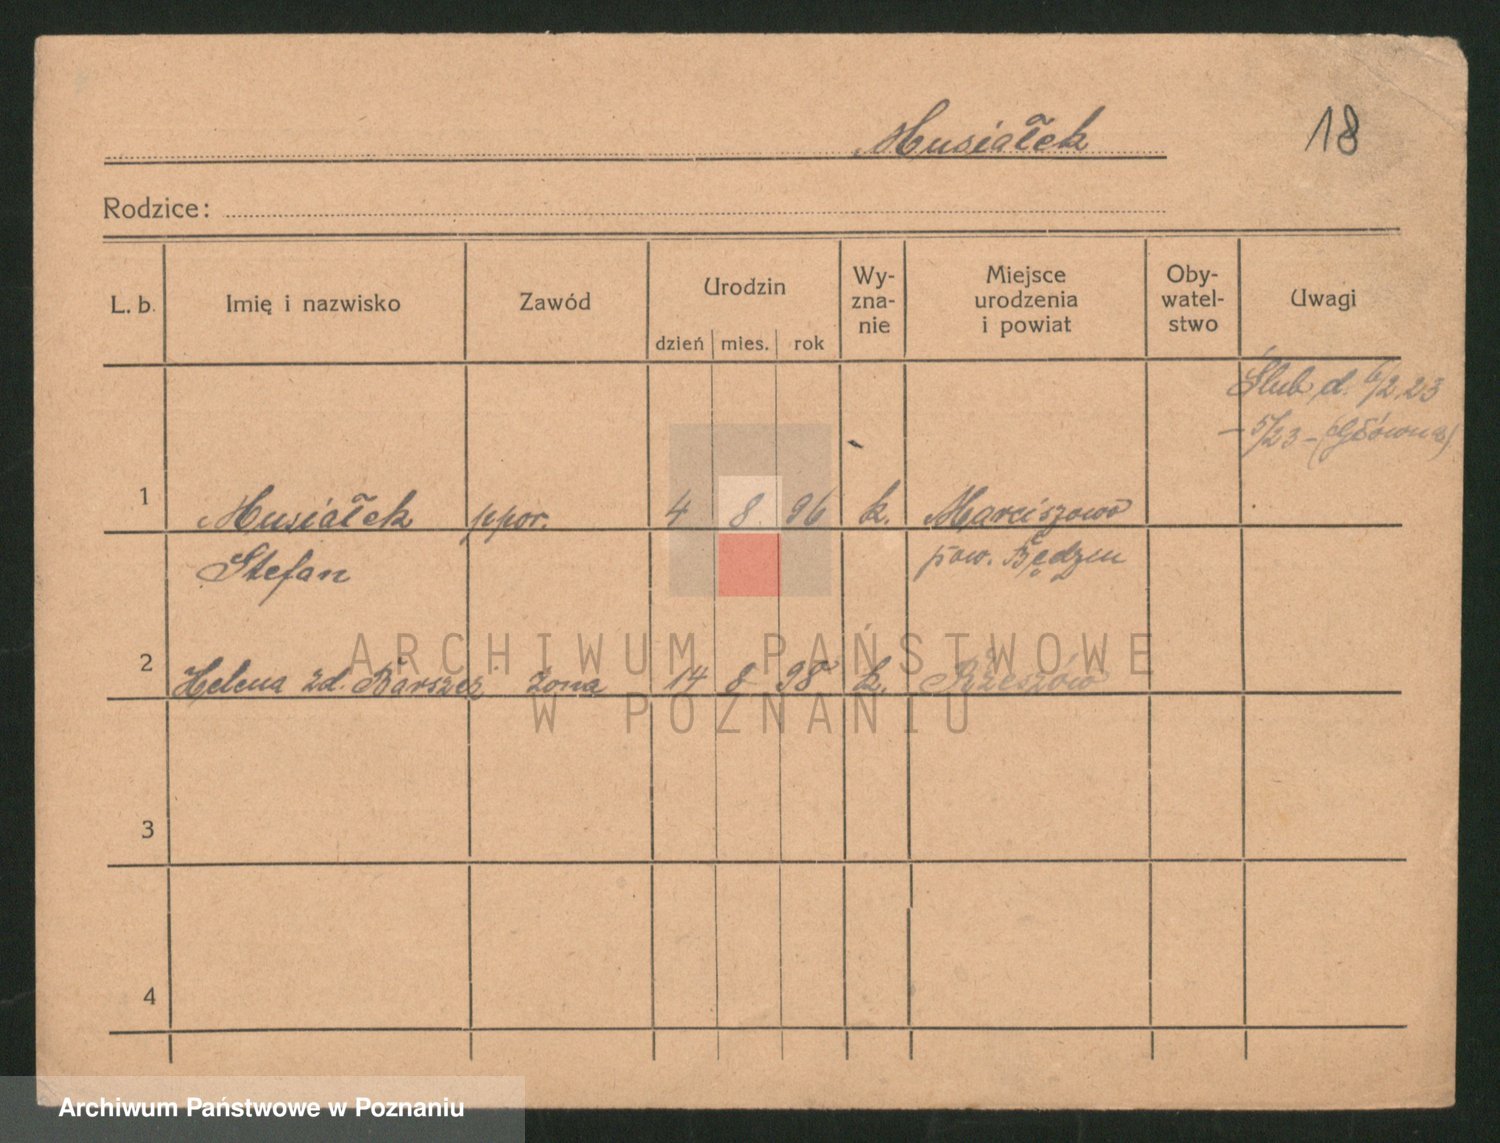 Musiałek
18
Rodzice:
L. b.
Imię i nazwisko
Zawód
Urodzin
dzień
mies.
rok
Wy-
zna-
nie
Miejsce
urodzenia
i powiat
Oby-
watel-
stwo
Uwagi
Ślub d. 6/2 23
– 5/23 – (Główna)
1
Musiałek ppor. 4 8. 96 k. Marciszowo
Stefan pow. Będzin
2
Helena zd. Barszcz żona 14 8 98 k. Rzeszów
3
4
ARCHIWUM PAŃSTWOWE
W POZNANIU
Archiwum Państwowe w Poznaniu